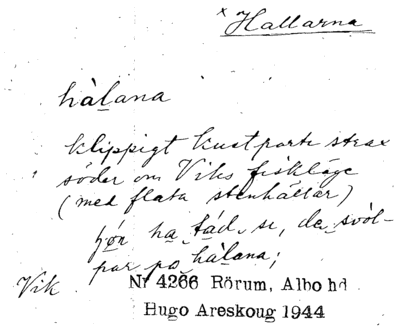 x Hallarna
hàlana
klippigt kustparti strax
söder om Viks fiskläge
(med flata stenhällar)
ha tád se, de svòl-
par po hàlana;
Vik
Nr 4266 Rörum, Albo hd
Hugo Areskoug 1944